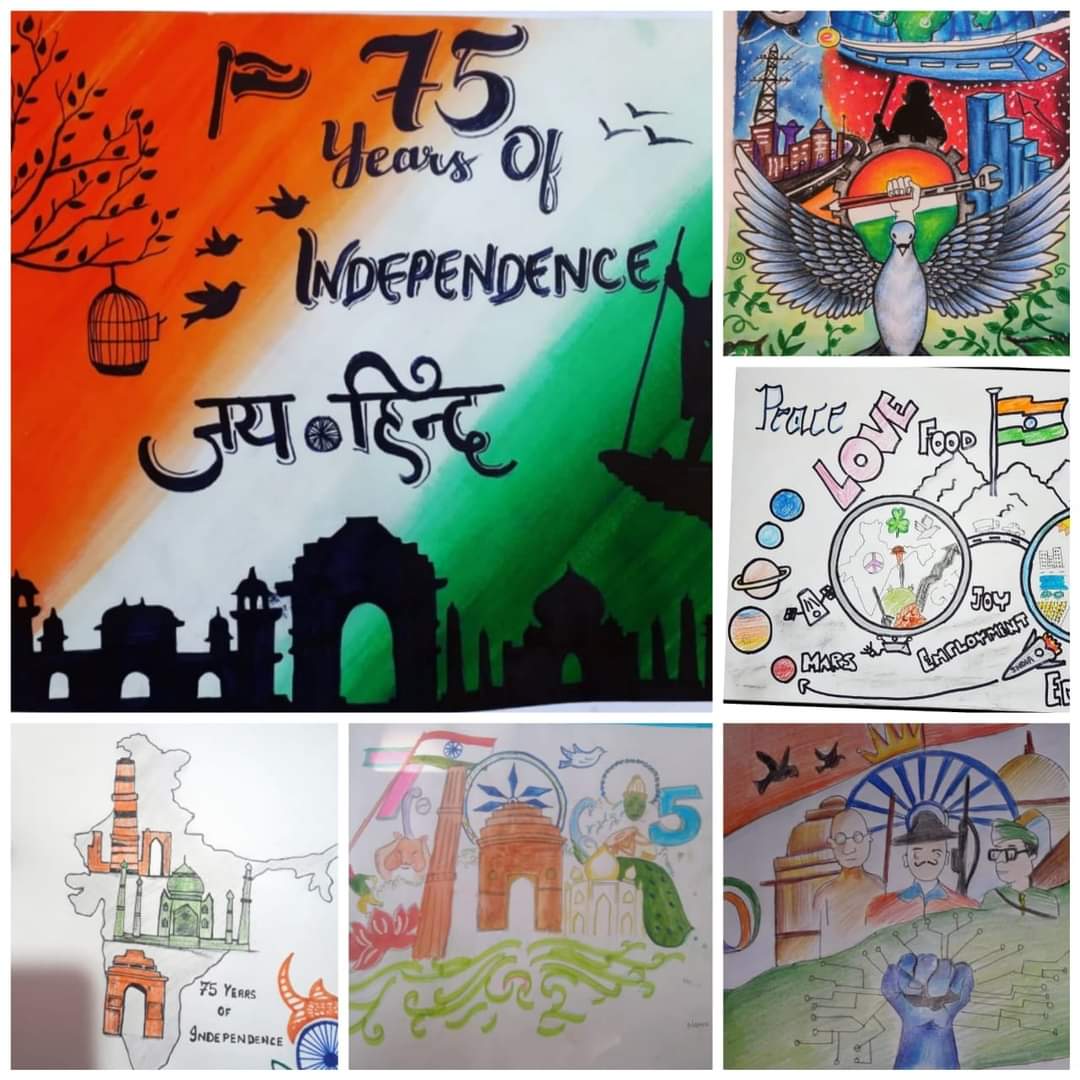 75
Years Of
INDEPENDENCE
जय हिन्द
Peace
LOVE
FOOD
JOY
EMPLOYMENT
MARS
INDIA
75 YEARS
OF
INDEPENDENCE
5